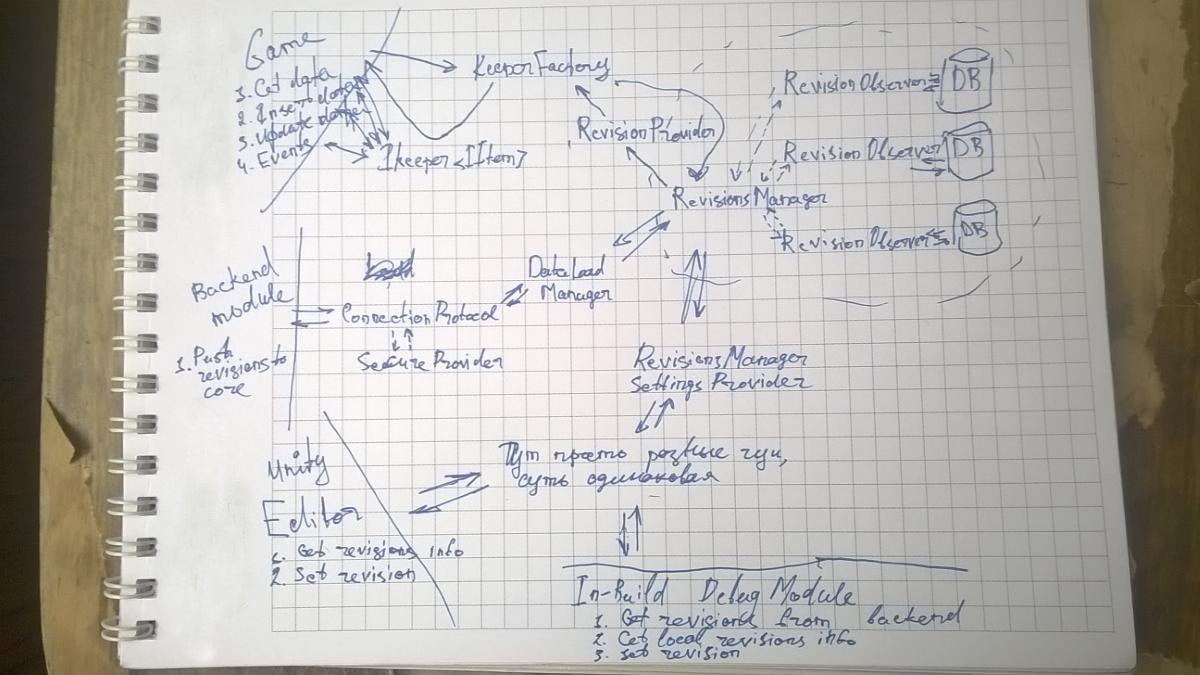 Game
1. Get data
2. Insert data
3. Update data
4. Events
KeeperFactory
IKeeper<IItem>
RevisionProvider
RevisionObserver
DB
RevisionObserver
DB
RevisionsManager
RevisionObserver
DB
Backend
module
1. Push
revisions to
core
DataLoad
Manager
ConnectionProtocol
SecureProvider
RevisionsManager
Settings Provider
Тут просто разные гуи,
суть одинаковая
Unity
Editor
1. Get revisions info
2. Set revision
In-Build Debug Module
1. Get revisions from backend
2. Get local revisions info
3. set revision